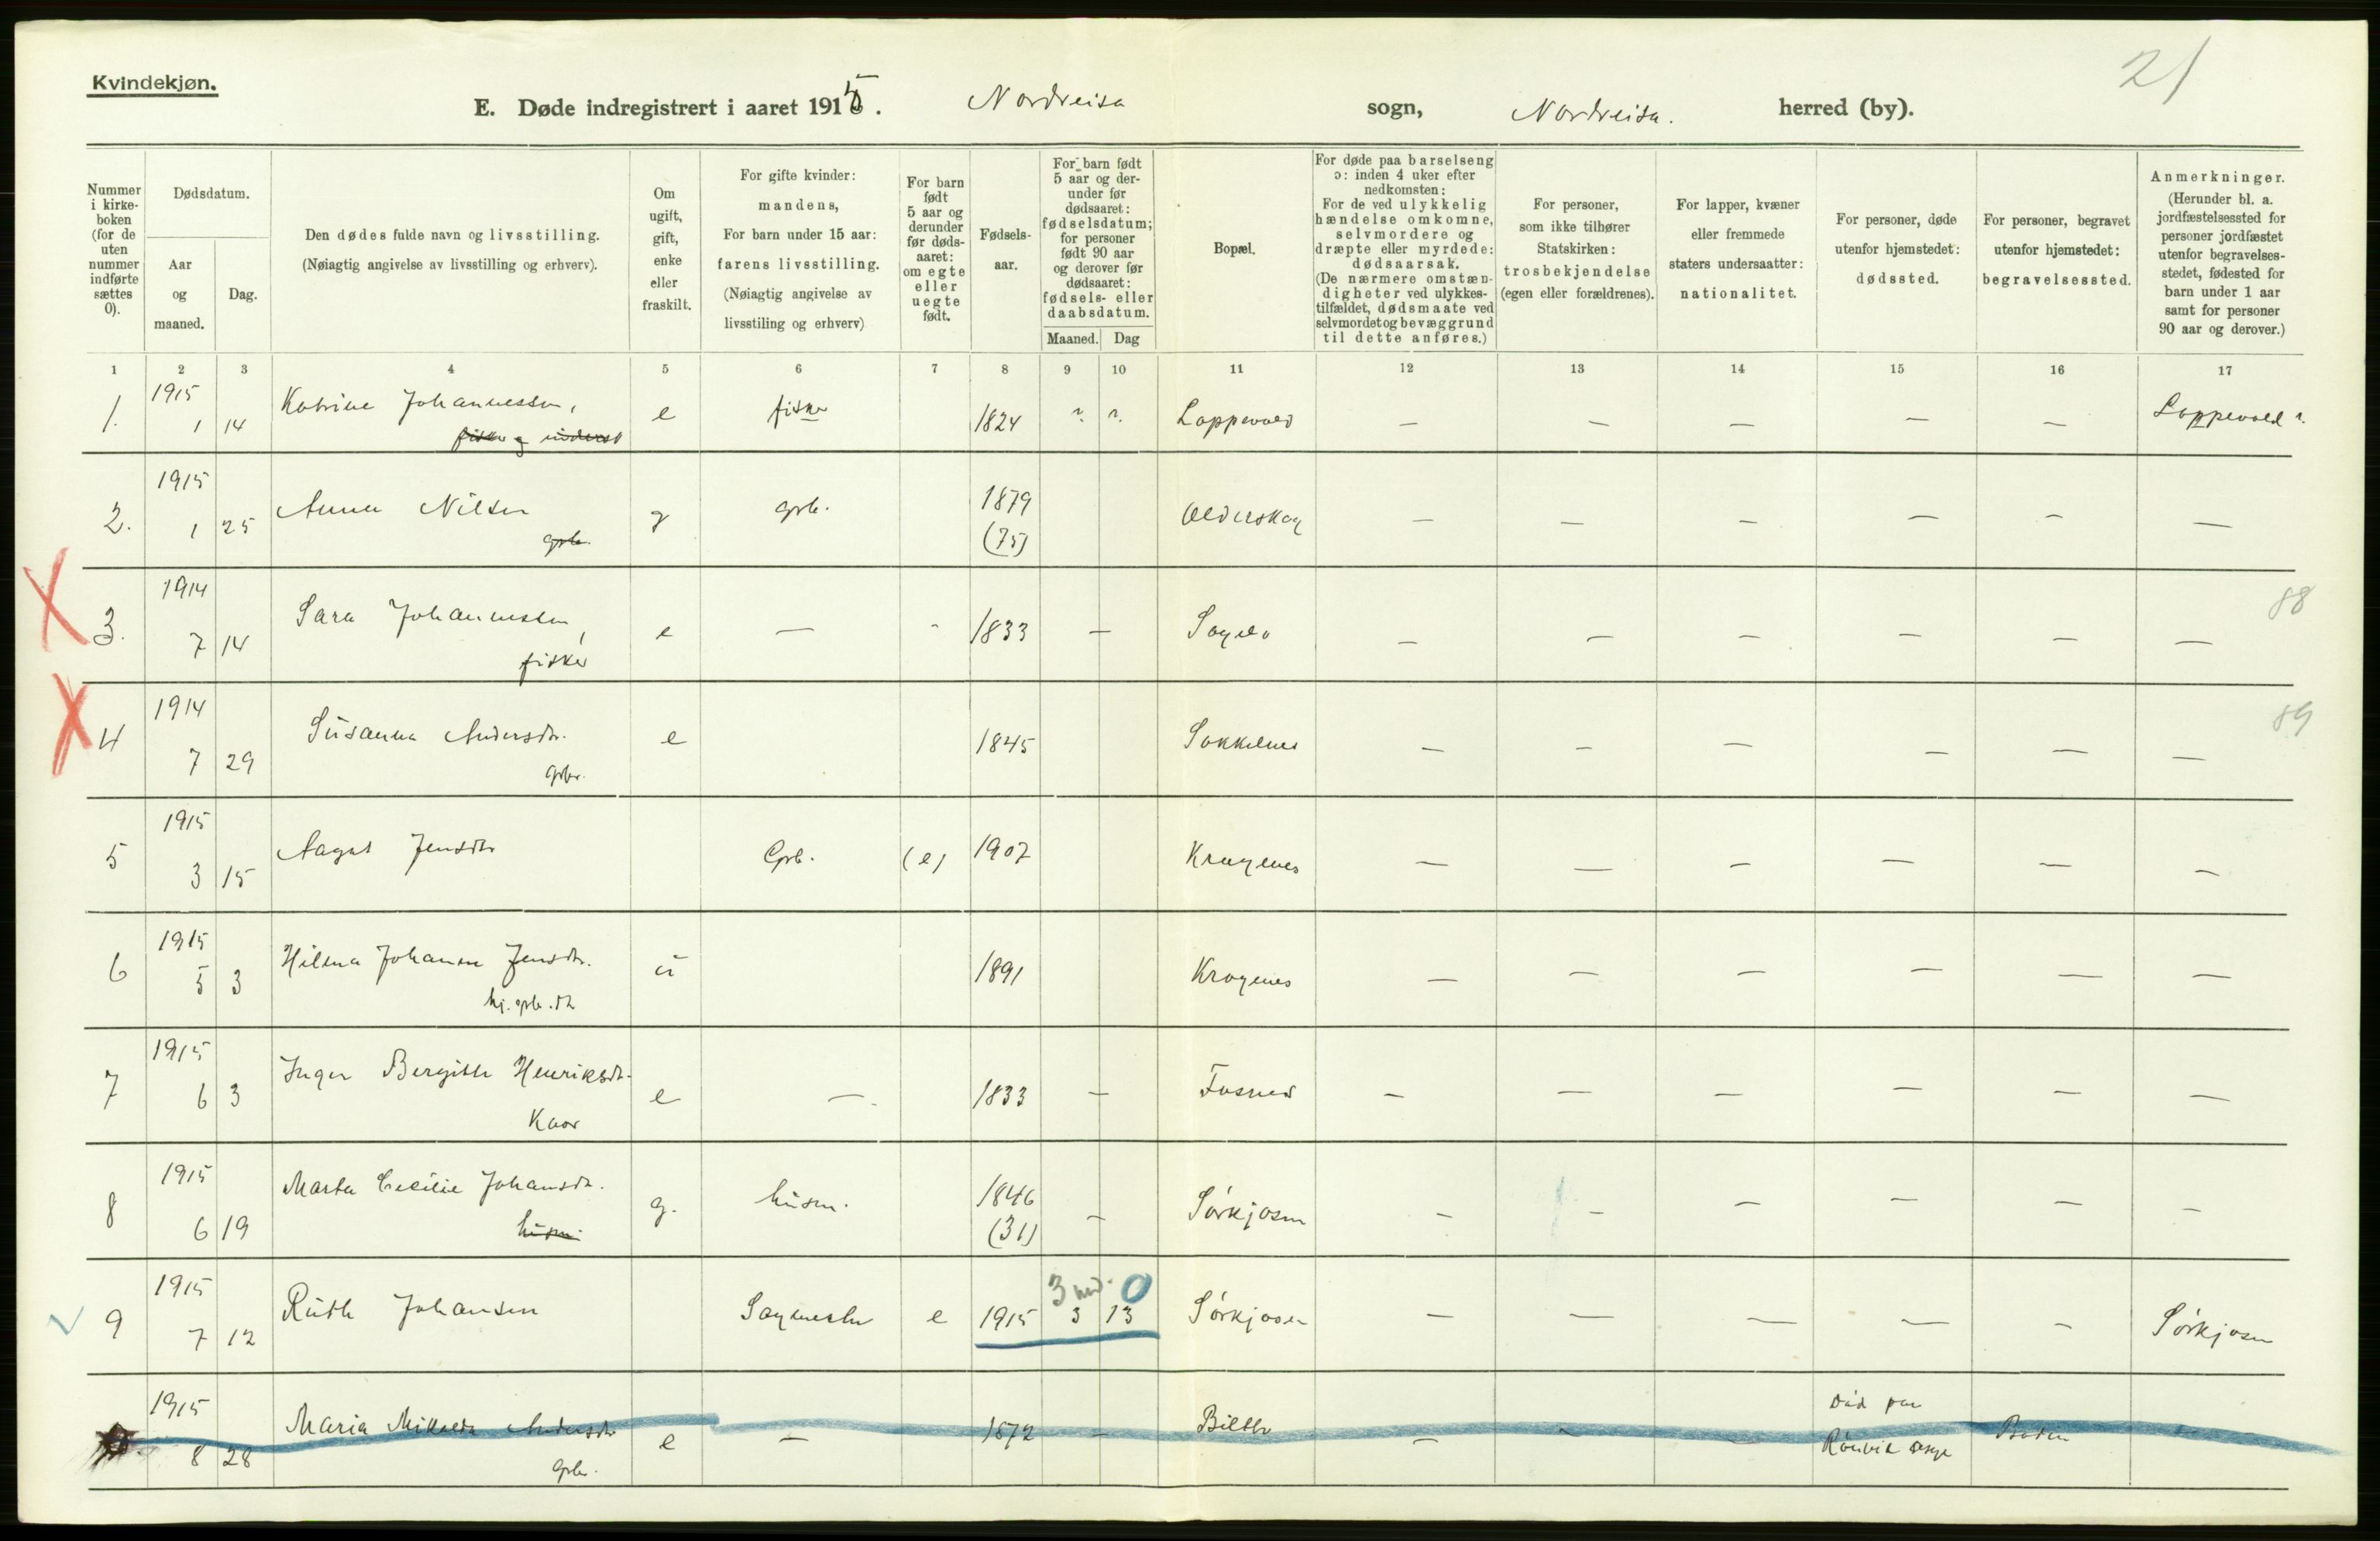 Kvindekjøn.
21
E. Døde indregistrert i aaret 1915. Nordreisa sogn, Nordreisa. herred (by).
Nummer i kirke-boken (for de uten nummer indførte sættes 0).
Dødsdatum.
Aar og maaned.
Dag.
Den dødes fulde navn og livsstilling.
(Nøiagtig angivelse av livsstilling og erhverv).
Om ugift, gift, enke eller fraskilt.
For gifte kvinder: mandens,
For barn under 15 aar: farens livsstilling.
(Nøiagtig angivelse av livsstiling og erhverv)
For barn født 5 aar og derunder før døds-aaret: om egte eller uegte født.
Fødsels-aar.
For barn født 5 aar og der-under før dødsaaret: fødselsdatum; for personer født 90 aar og derover før dødsaaret: fødsels- eller daabsdatum.
Maaned. Dag
Bopæl.
For døde paa barselseng ɔ: inden 4 uker efter nedkomsten:
For de ved ulykkelig hændelse omkomne, selvmordere og dræpte eller myrdede: dødsaarsak.
(De nærmere omstæn-digheter ved ulykkes-tilfældet, dødsmaate ved selvmordet og bevæggrund til dette anføres.)
For personer, som ikke tilhører Statskirken: trosbekjendelse (egen eller forældrenes).
For lapper, kvæner eller fremmede staters undersaatter: nationalitet.
For personer, døde utenfor hjemstedet: dødssted.
For personer, begravet utenfor hjemstedet: begravelsessted.
Anmerkninger.
(Herunder bl. a. jordfæstelsessted for personer jordfæstet utenfor begravelses-stedet, fødested for barn under 1 aar samt for personer 90 aar og derover.)
1 2 3 4 5 6 7 8 9 10 11 12 13 14 15 16 17
1. 1915 1 14 Katrine Johannessen, fisker og inderst e fisker 1824 ? ? Lappevold — — — — — Lappevold ?
2. 1915 1 25 Anna Nilsen grb. g grb. 1879 (75) Olderskog — — — — — —
3. 1914 7 14 Sara Johannessen, fisker e — - 1833 — — — — — — — 88
4 1914 7 29 Susanna Andersdtr. grbr. e 1845 Sokkelnes — — — — — — 89
5 1915 3 15 Aagot Jensdtr Grb. (e) 1907 Kragenes — — — — — —
6 1915 5 3 Hilma Johanna Jensdtr. hj. grb. dtr u 1891 Kragenes — — — — — —
7 1915 6 3 Inger Bergitte Henriksdtr. Kaar e — 1833 — Fosnes — — — — — —
8 1915 6 19 Marta Cecilie Johansdtr. husm. g. husm. 1846 (31) — Sørkjosen — — — — — —
9 1915 7 12 Ruth Johansen e 1915 3 13 3 md. 0 Sørkjosen — — — — — Sørkjosen
1915 8 28 Maria Mikalda Andersdtr. grbr. e — 1872 — Bilto — — — Død paa Rønvik asyl Bodin